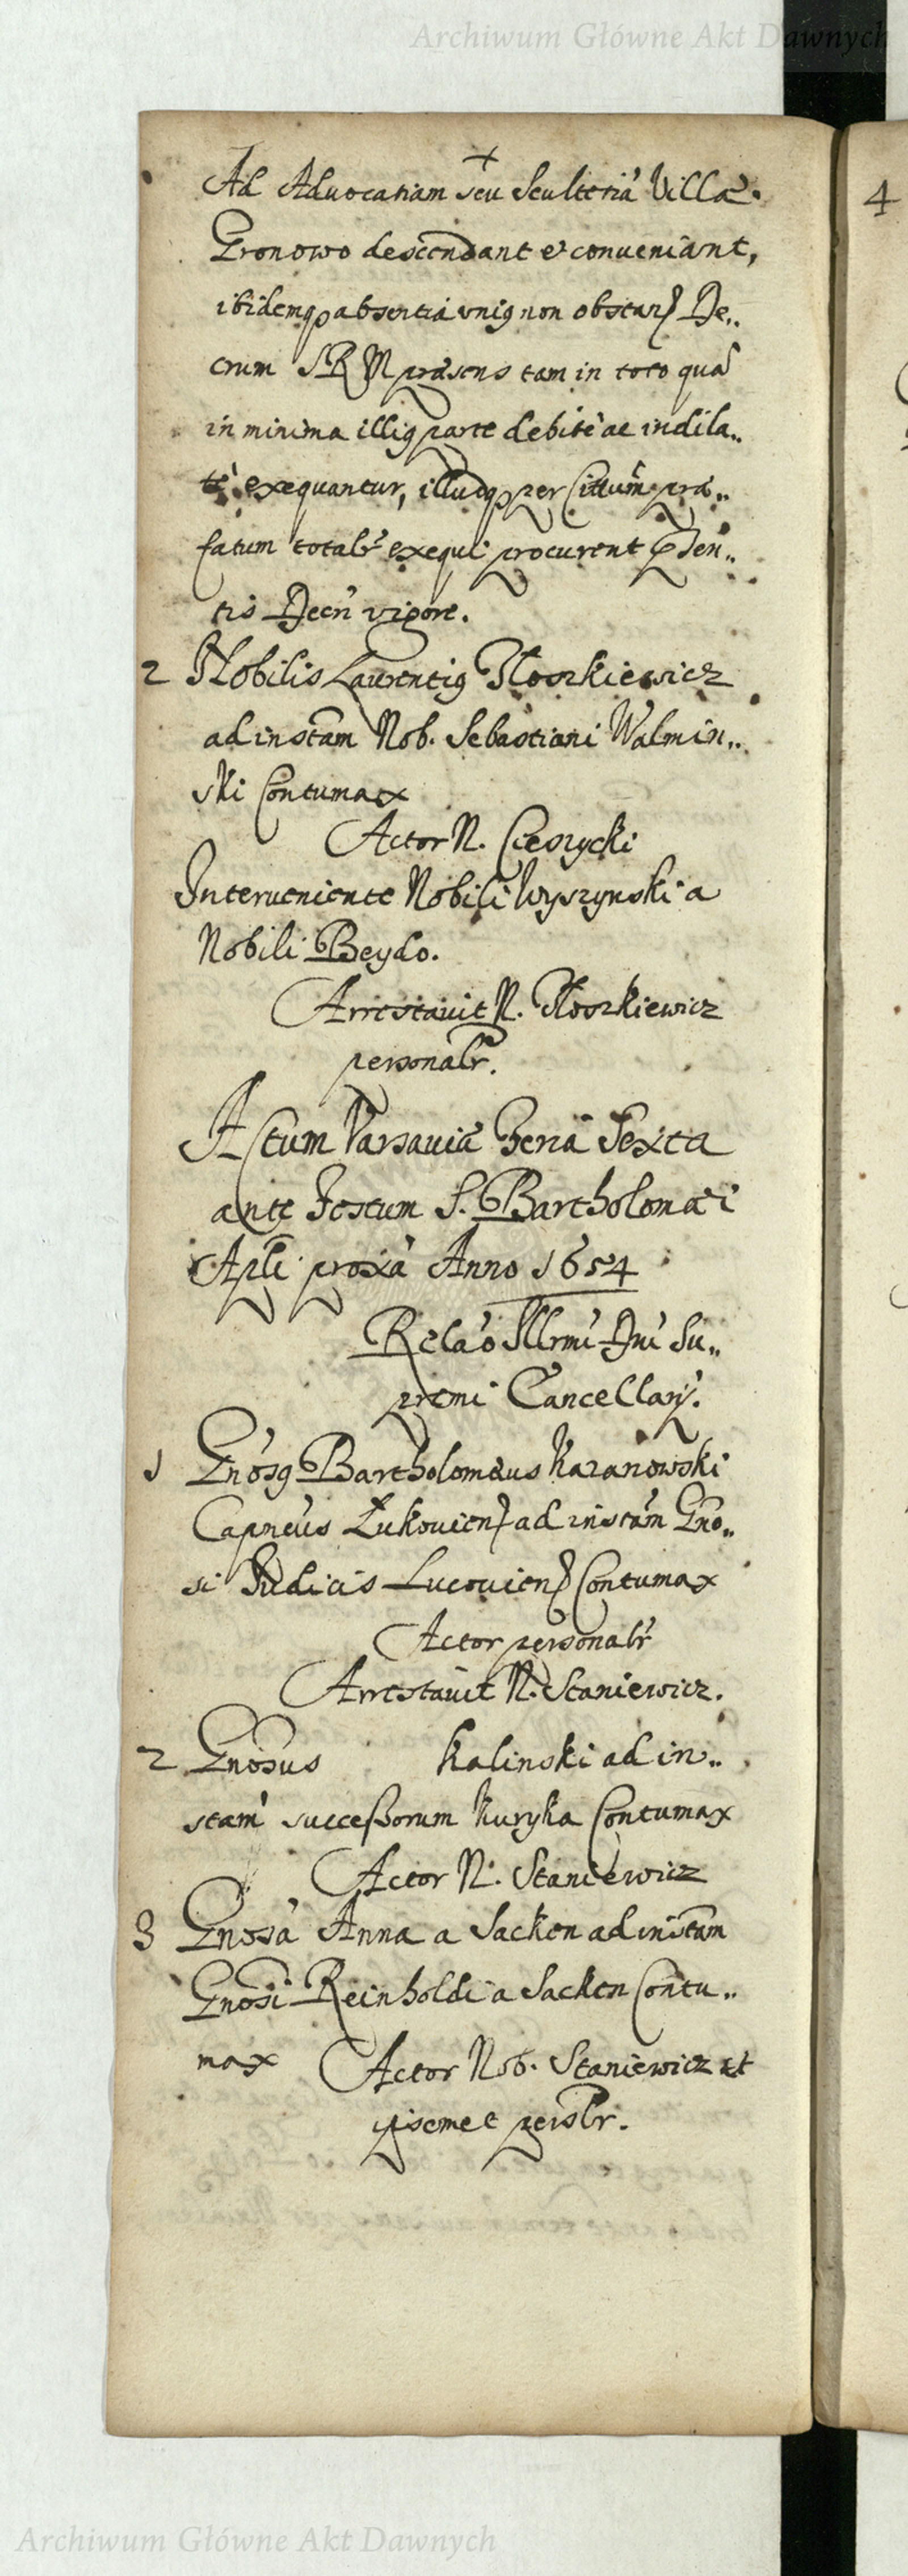 Archiwum Główne Akt Dawnych
+
Ad Advocatiam seu Scultetiã Villæ
4
Gronowo descendant et conveniant,
ibidemqꝫ absentia vniꝰ non obstan De„
crum SRM præsens tam in toto quã
in minima illiꝰ parte debitè ac indila„
tè exequantur, illudqꝫ per præ„
fatum totalr exequi procurent Præsen„
tis Decri vigore.
2 Nobilis Laurentiꝰ Ploszkiewicz
ad instam Nob. Sebastiani Walmin„
ski Contumax
Actor N. Cieszycki
Interueniente Nobili Wyszynski a
Nobili Beydo.
Arrestauit N. Ploszkiewicz
personalr.
Actum Varsauiæ Feria Sexta
ante Festum S. Bartholomæi
Apli proxa Anno 1654
Relao Illrmi Dni Su„
premi Cancellarij.
1 Gnosꝰ Bartholomæus Kazanowski
Capneus Lukouien ad instam Gno„
si Judicis Lucouien Contumax
Actor personalr
Arrestauit N. Staniewicz.
2 Gnosus Kalinski ad in„
stam successorum Kuryka Contumax
Actor N. Staniewicz
3 Gnosa Anna a Sacken ad instam
Gnosi Reinholdi a Sacken Contu„
max Actor Nob. Staniewicz et
ipsemet persolr.
Archiwum Główne Akt Dawnych